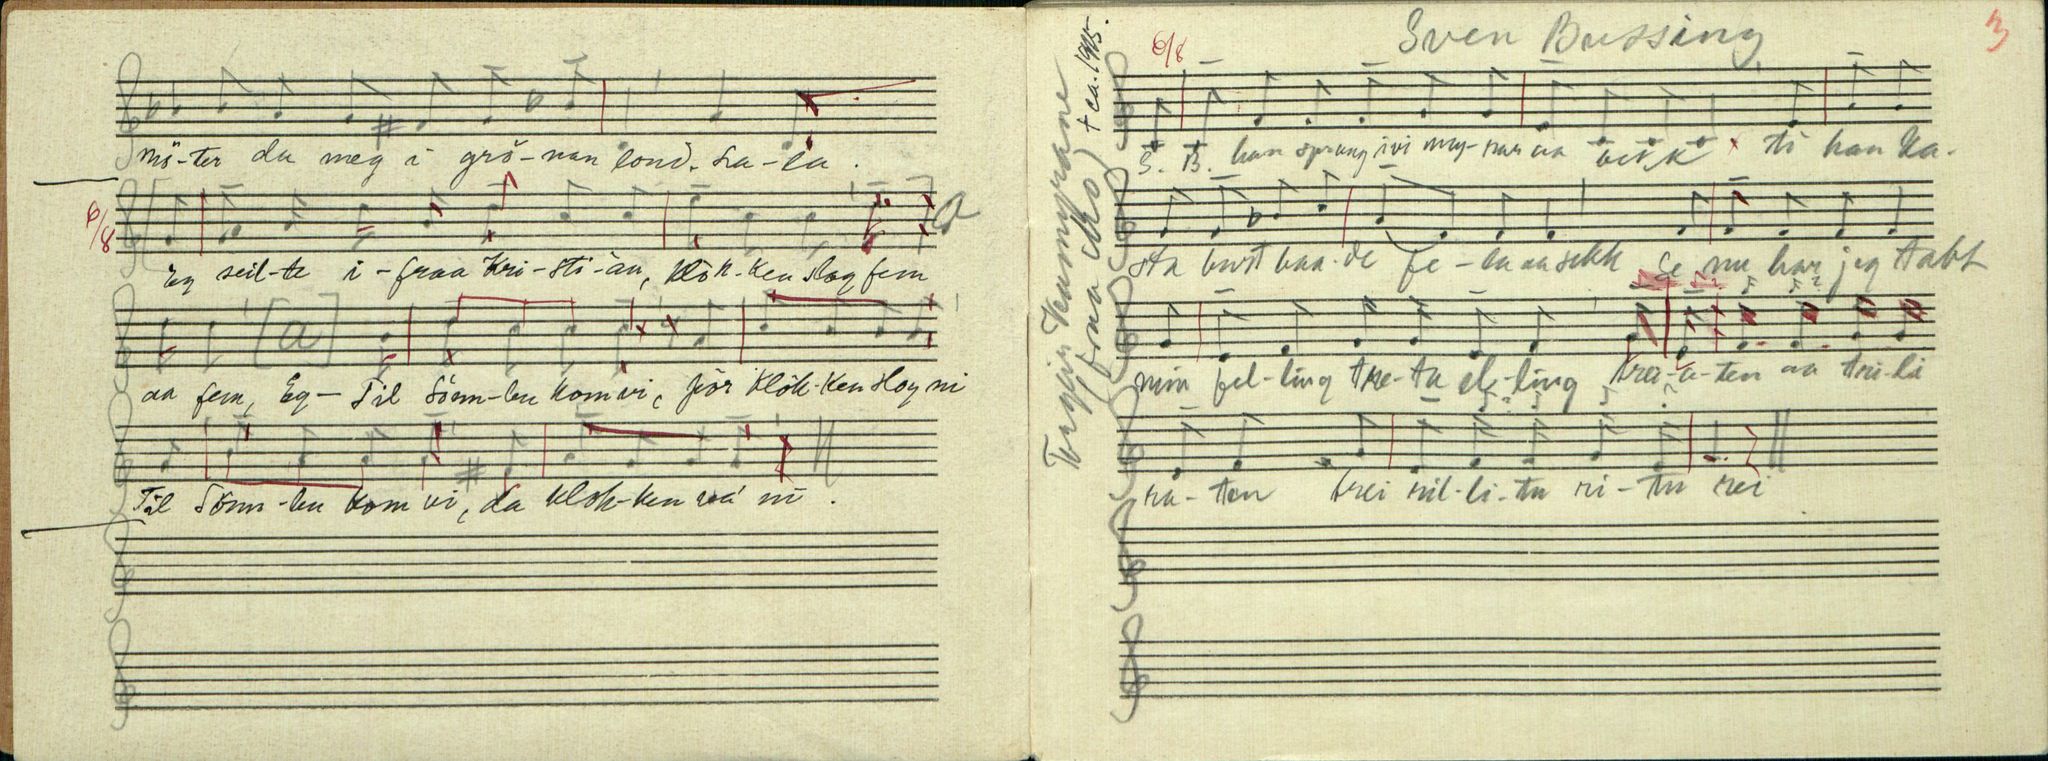 mö-ter du meg i grö-nan lond. Sa-la.
6/8
Eg seil-te i-fraa Kri-sti-àn, klök-ken slog fem
[a]
aa fem, Eg- Til Sönn-leu kom vi, för klök-ken slog ni
Til Sönn-leu kom vi, da klok-ken va' ni.
Sven Bussing
3
6/8
+ ca. 1905.
S. B. han sprang ivi myr-rar aa ti han ka-
sta burt baa-de fe-la aa sekk Se nu har jeg tabt
min fel-ling tre-ta el-ling trei-a-ten aa tri-li
ra-ten trei ril-li-tu ri-tu rei